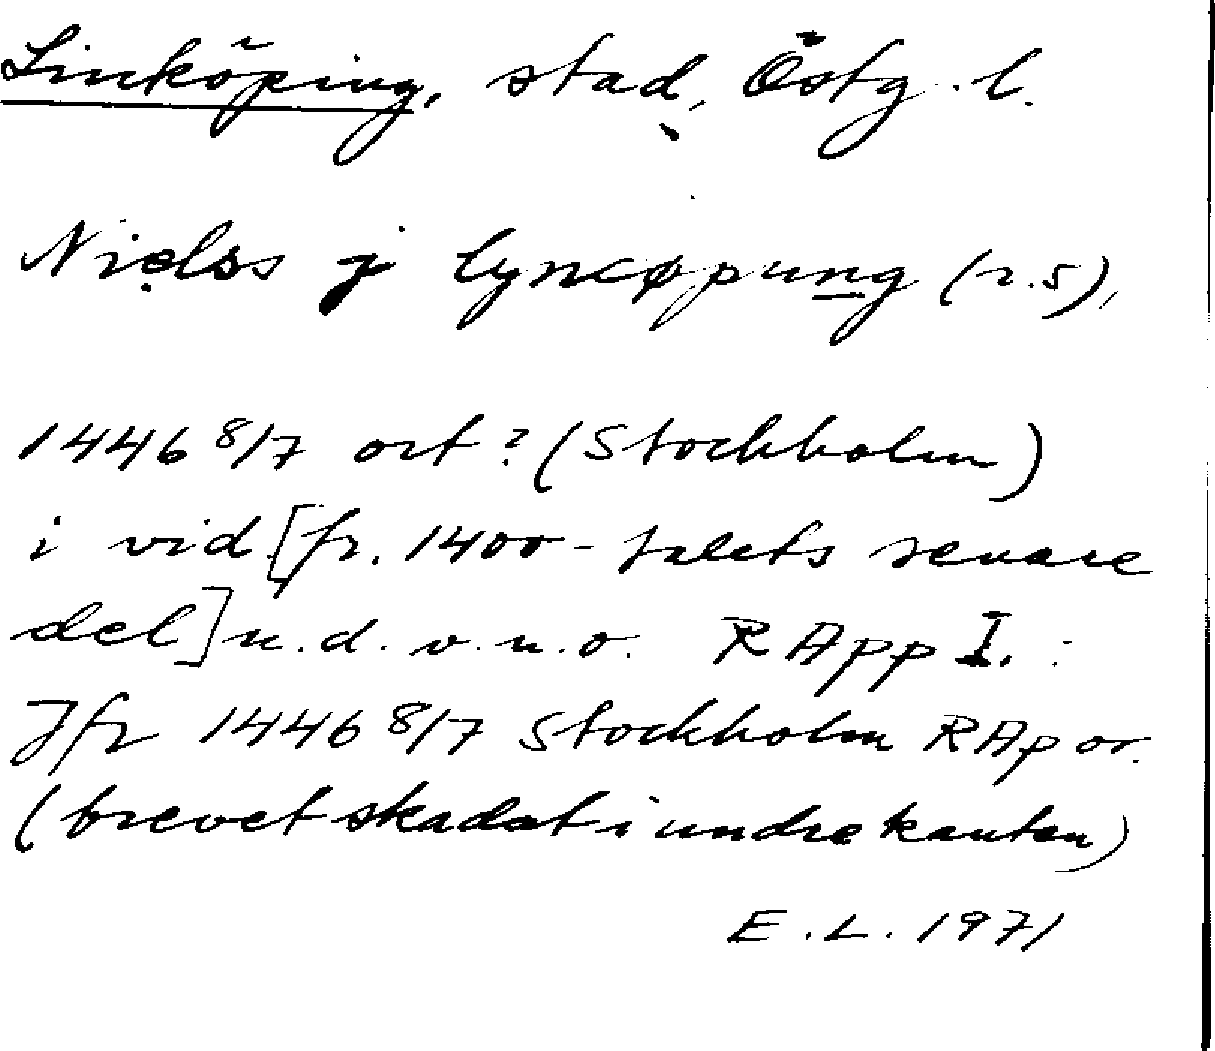 Linköping, stad, Östg. l.
Nielss j lyncøpung (r.5),
1446 8/7 ort? (Stockholm)
i vid [fr. 1400-talets senare
del] u.d.v.n.o. RApp I. :
Jfr 1446 8/7 Stockholm RAp or.
(brevet skadat i undre kanten)
E.L. 1971